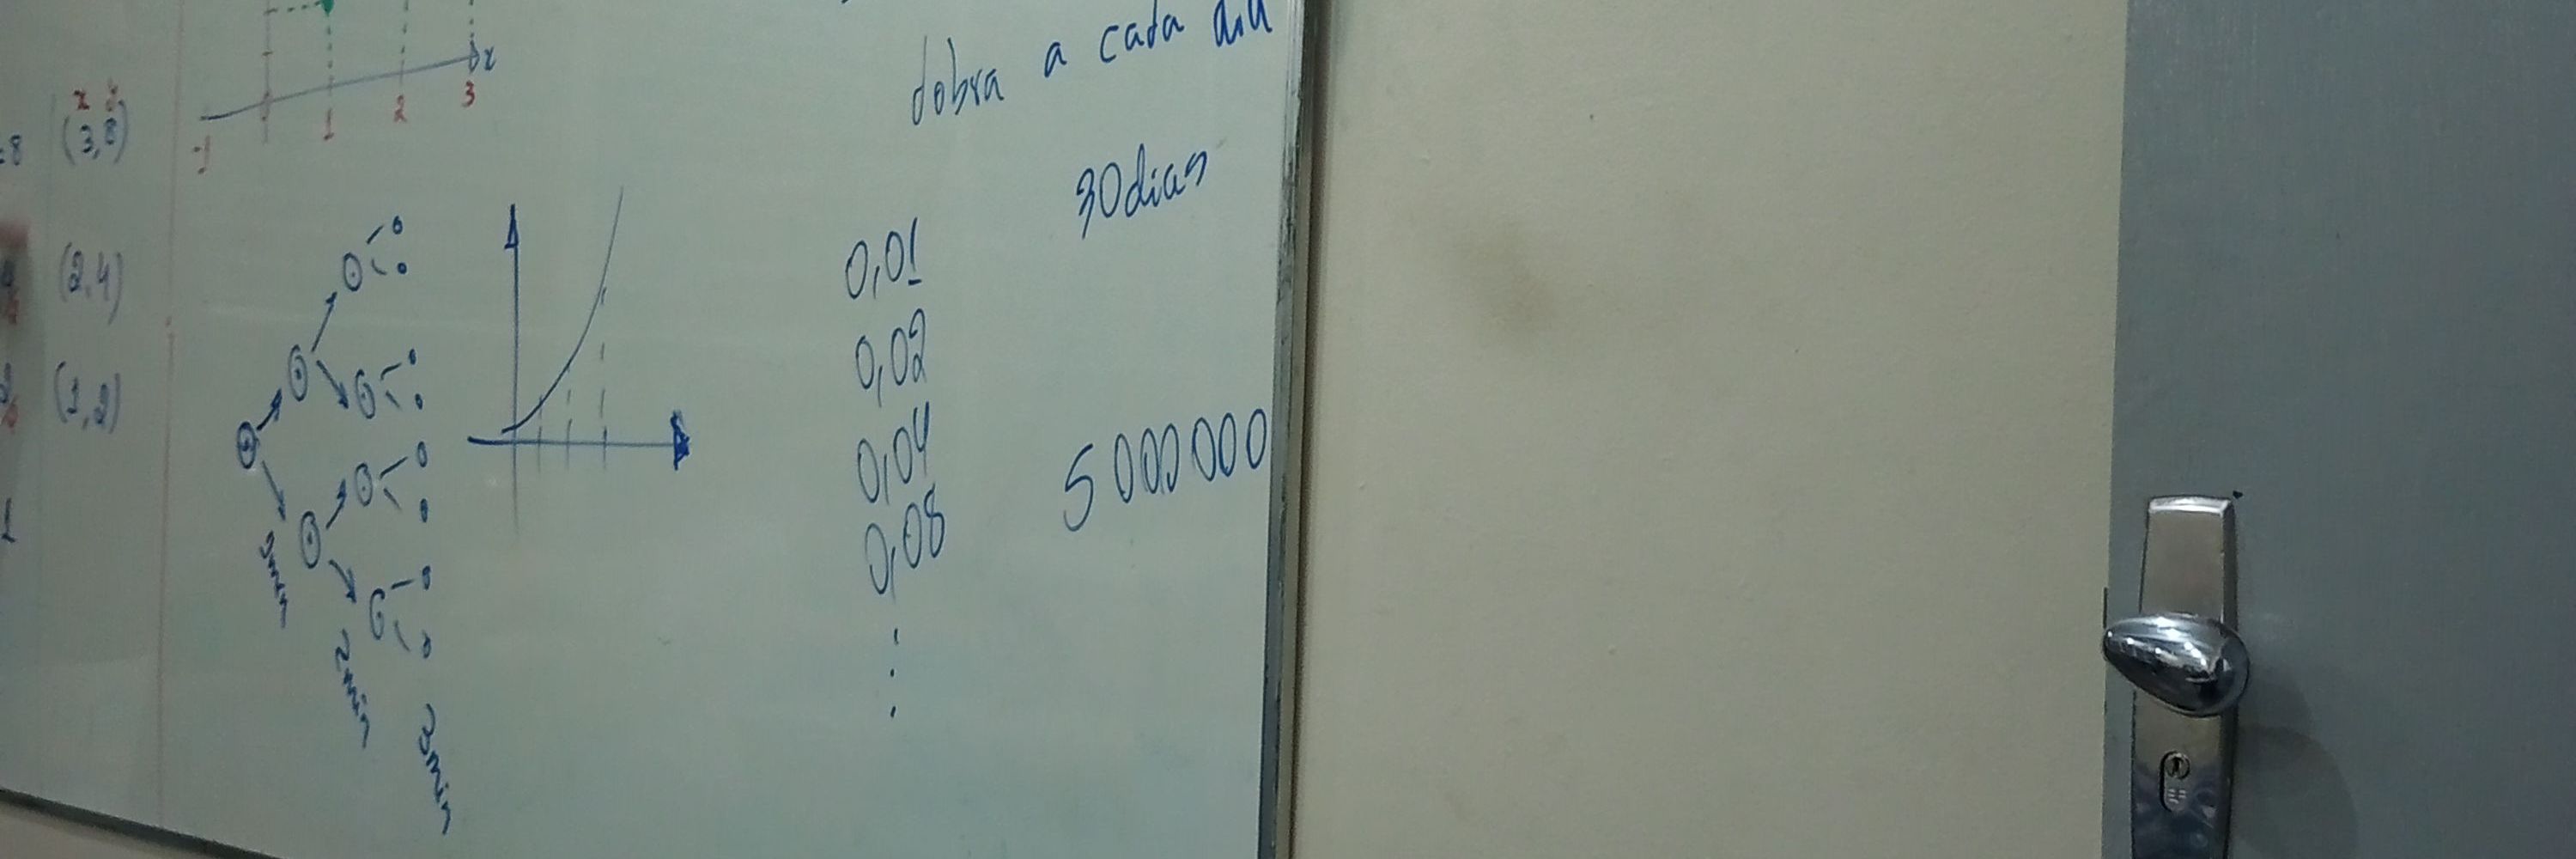 dobra a cada dia
x
-1 1 2 3
x y
(3,8)
=8
30 dias
(2,4)
0,01
0,02
(1,2)
0,04
5000000
0,08
1
2min
3min